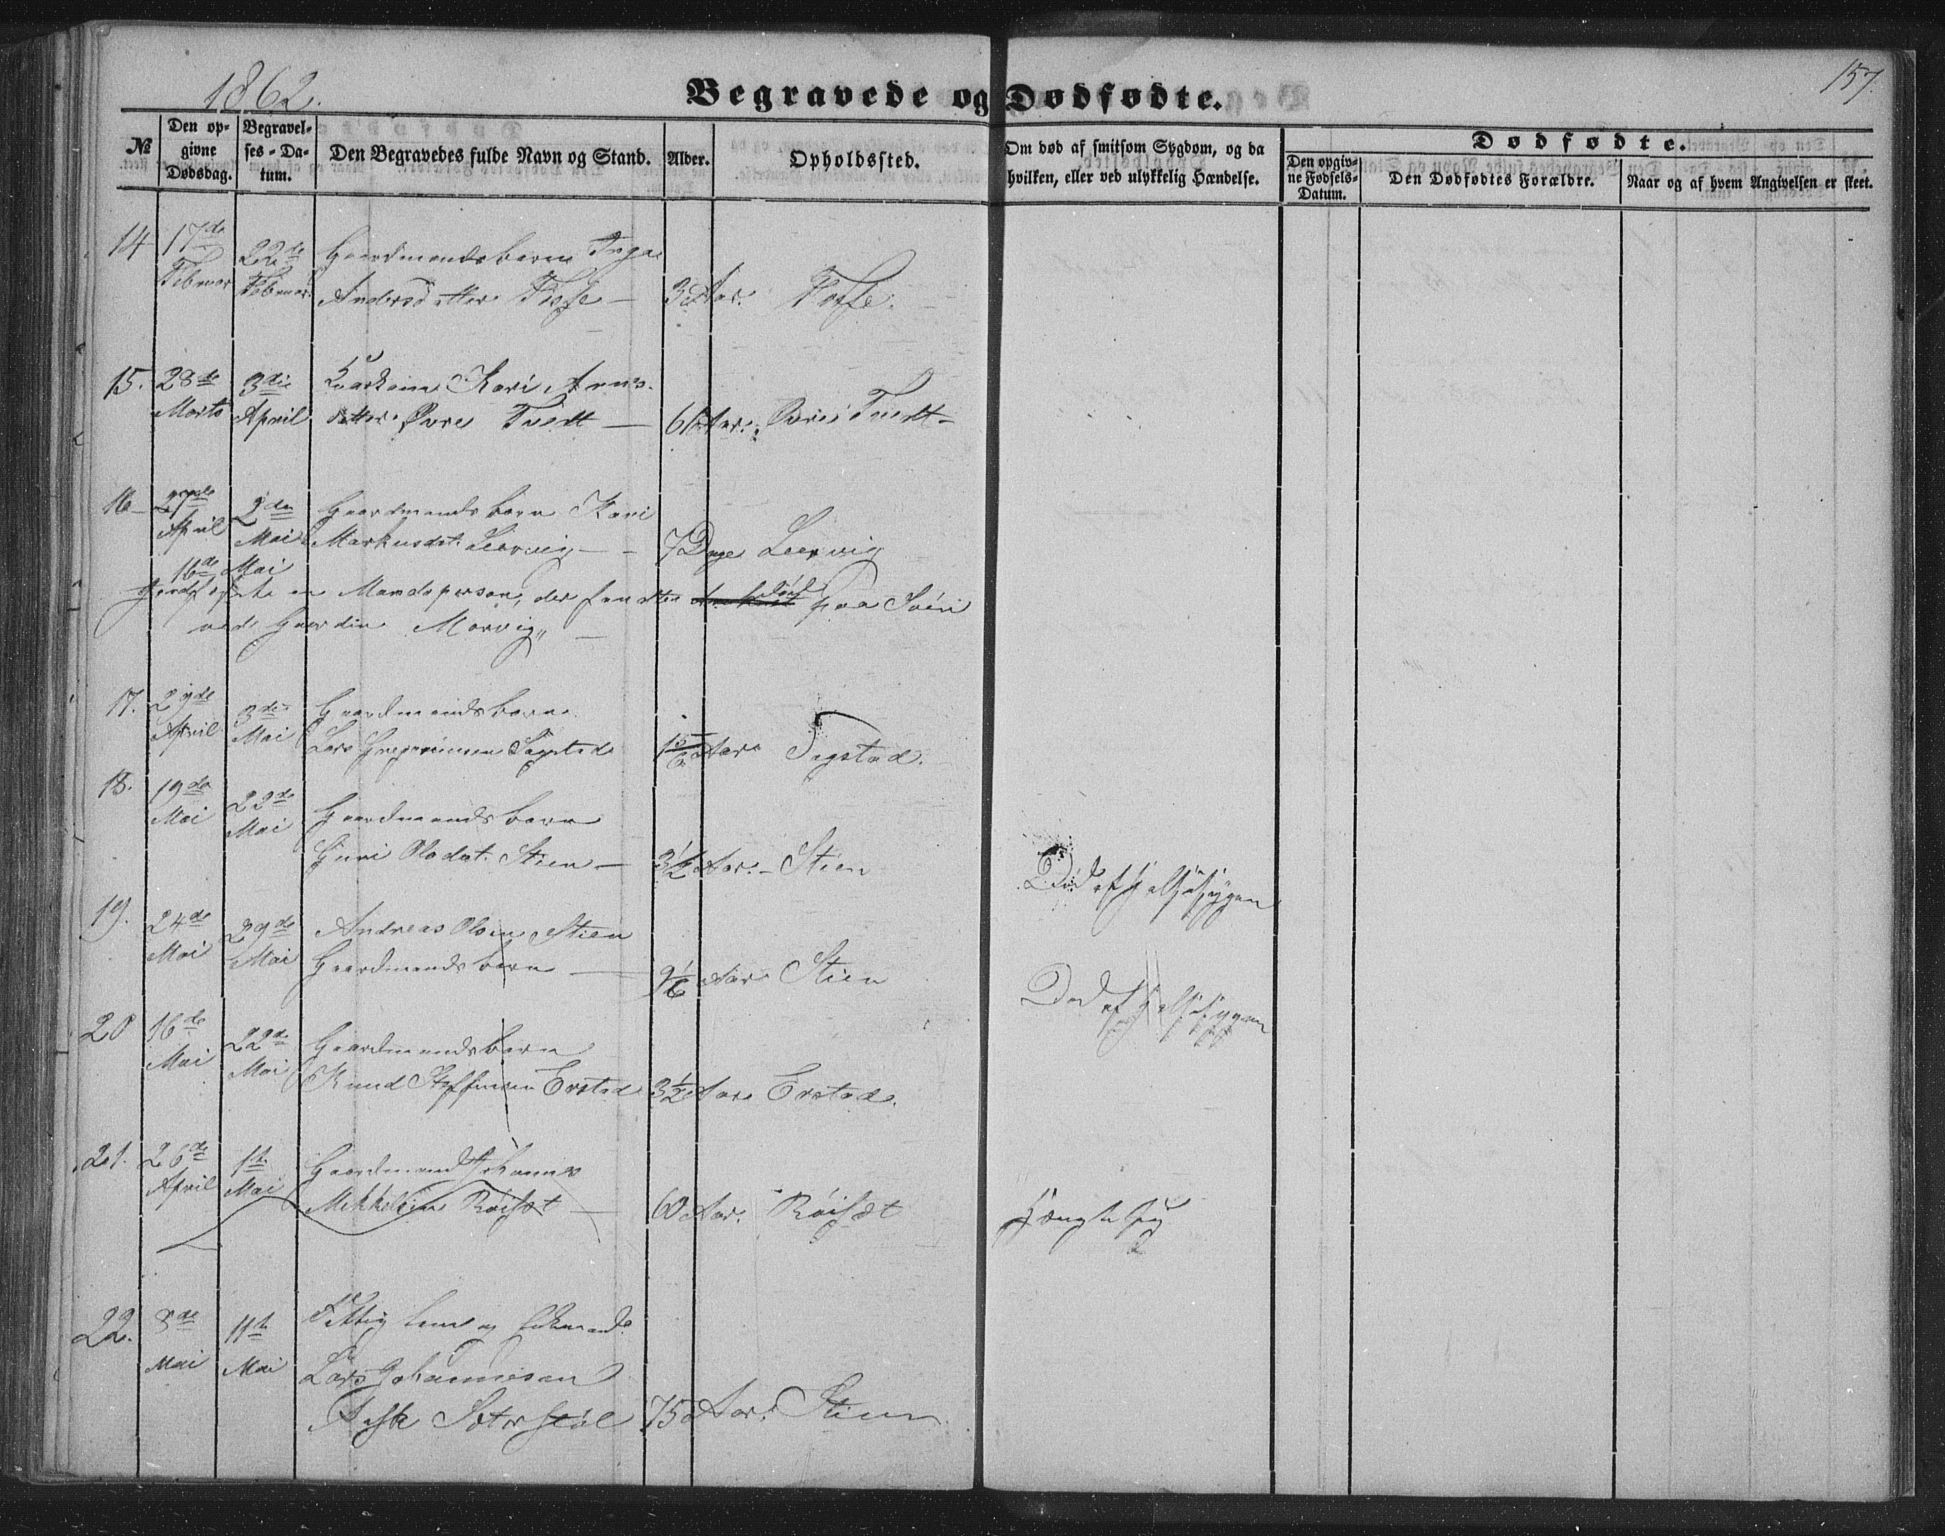 1862.
157.
Begravede og Dødfødte.
№
Den opgivne Dødsdag.
Begravelses-Datum.
Den Begravedes fulde Navn og Stand.
Alder.
Opholdssted.
Om død af smitsom Sygdom, og da hvilken, eller ved ulykkelig Hændelse.
Dødfødte.
Den opgivne Fødsels-Datum.
Den Dødfødtes Forældre.
Naar og af hvem Angivelsen er skeet.
14 17de Februar 22de Februar Gaardmandsbarn Inga
Andersdatter Fosse — 3 Aar. Fosse.
15. 28de Marts 3die April Kaarkone Kari Arnes-
datter Øvre Tvedt — 66 Aar. Øvre Tvedt —
16 27de April 2den Mai Gaardmandsbarn Kari
Markusdat. Leervig — 7 Dage Leervig
16de Mai
Jordfæstet en Mandsperson, der fandtes død paa Søen
ved Gaarden Morvig —
17. 29de April 3die Mai Gaardmandsbarn
Lars Gregoriussen Tagstad 1 5/6 Aar Tagstad.
18. 19de Mai 23de Mai Gaardmandsbarn
Guri Olsdat. Stien — 3 1/2 Aar. — Stien Død af Halssygen
19. 24de Mai 29de Mai Andreas Olsen Stien
Gaardmandsbarn — 9 1/6 Aar Stien Død af Halssygen
20 16de Mai 22de Mai Gaardmandsbarn
Knud Steffensen Erstad 3 1/2 Aar Erstad.
21. 26de April 1te Mai Gaardmand Johannes
Mikkelsen Røisæt — 60 Aar. Røisæt
22. 8de Mai 11te Mai Fattiglem og Enkemand
Lars Johannesen
75 Aar. Stien